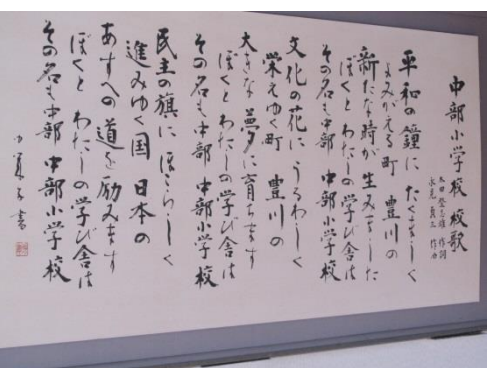 中部小学校 校歌
太田 登志雄 作詞
水光 貞三 作曲
平和の鐘に たくましく
よみがえる町 豊川の
新たな時が生みました
ぼくとわたしの学び舎は
その名も中部 中部小学校
文化の花に うるわしく
栄えゆく町 豊川の
大きな夢に育ちます
ぼくとわたしの学び舎は
その名も中部 中部小学校
民主の旗に ほこらしく
進みゆく国 日本の
あすへの道を励みます
ぼくとわたしの学び舎は
その名も中部 中部小学校
書